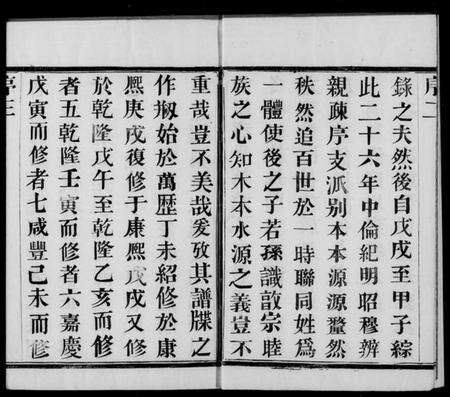 序二
錄之夫然後自戊戌至甲子綜
此二十六年中倫紀明昭穆辨
親疎序支派别本本源源釐然
秩然追百世於一時聯同姓爲
一體使後之子若孫識敦宗睦
族之心知木本水源之義豈不
重哉豈不美哉爰攷其譜牒之
作剏始於萬歷丁未紹修於康
熙庚戌復修于康熙戊戌又修
於乾隆戊午至乾隆乙亥而修
者五乾隆壬寅而修者六嘉慶
戊寅而修者七咸豐己未而修
序三